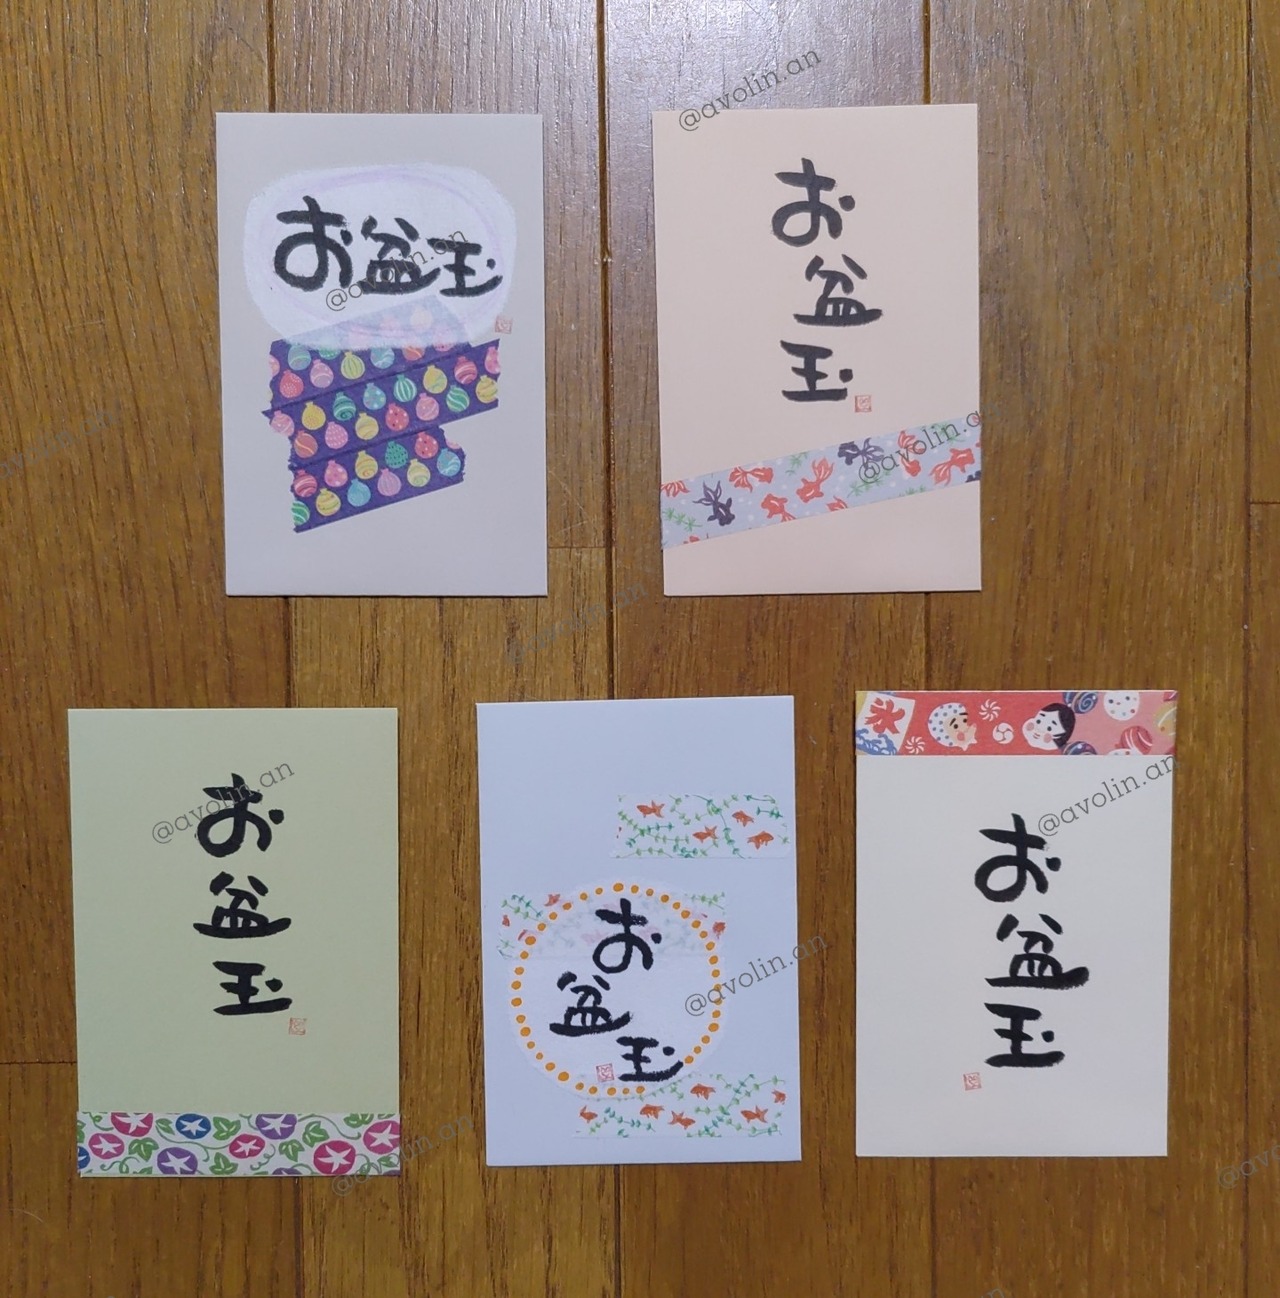 お盆玉
@avolin.an
@avolin.an
お
盆
玉
@avolin.an
お
盆
玉
@avolin.an
@avolin.an
お
盆
玉
@avolin.an
氷
お
盆
玉
@avolin.an
@avolin.an